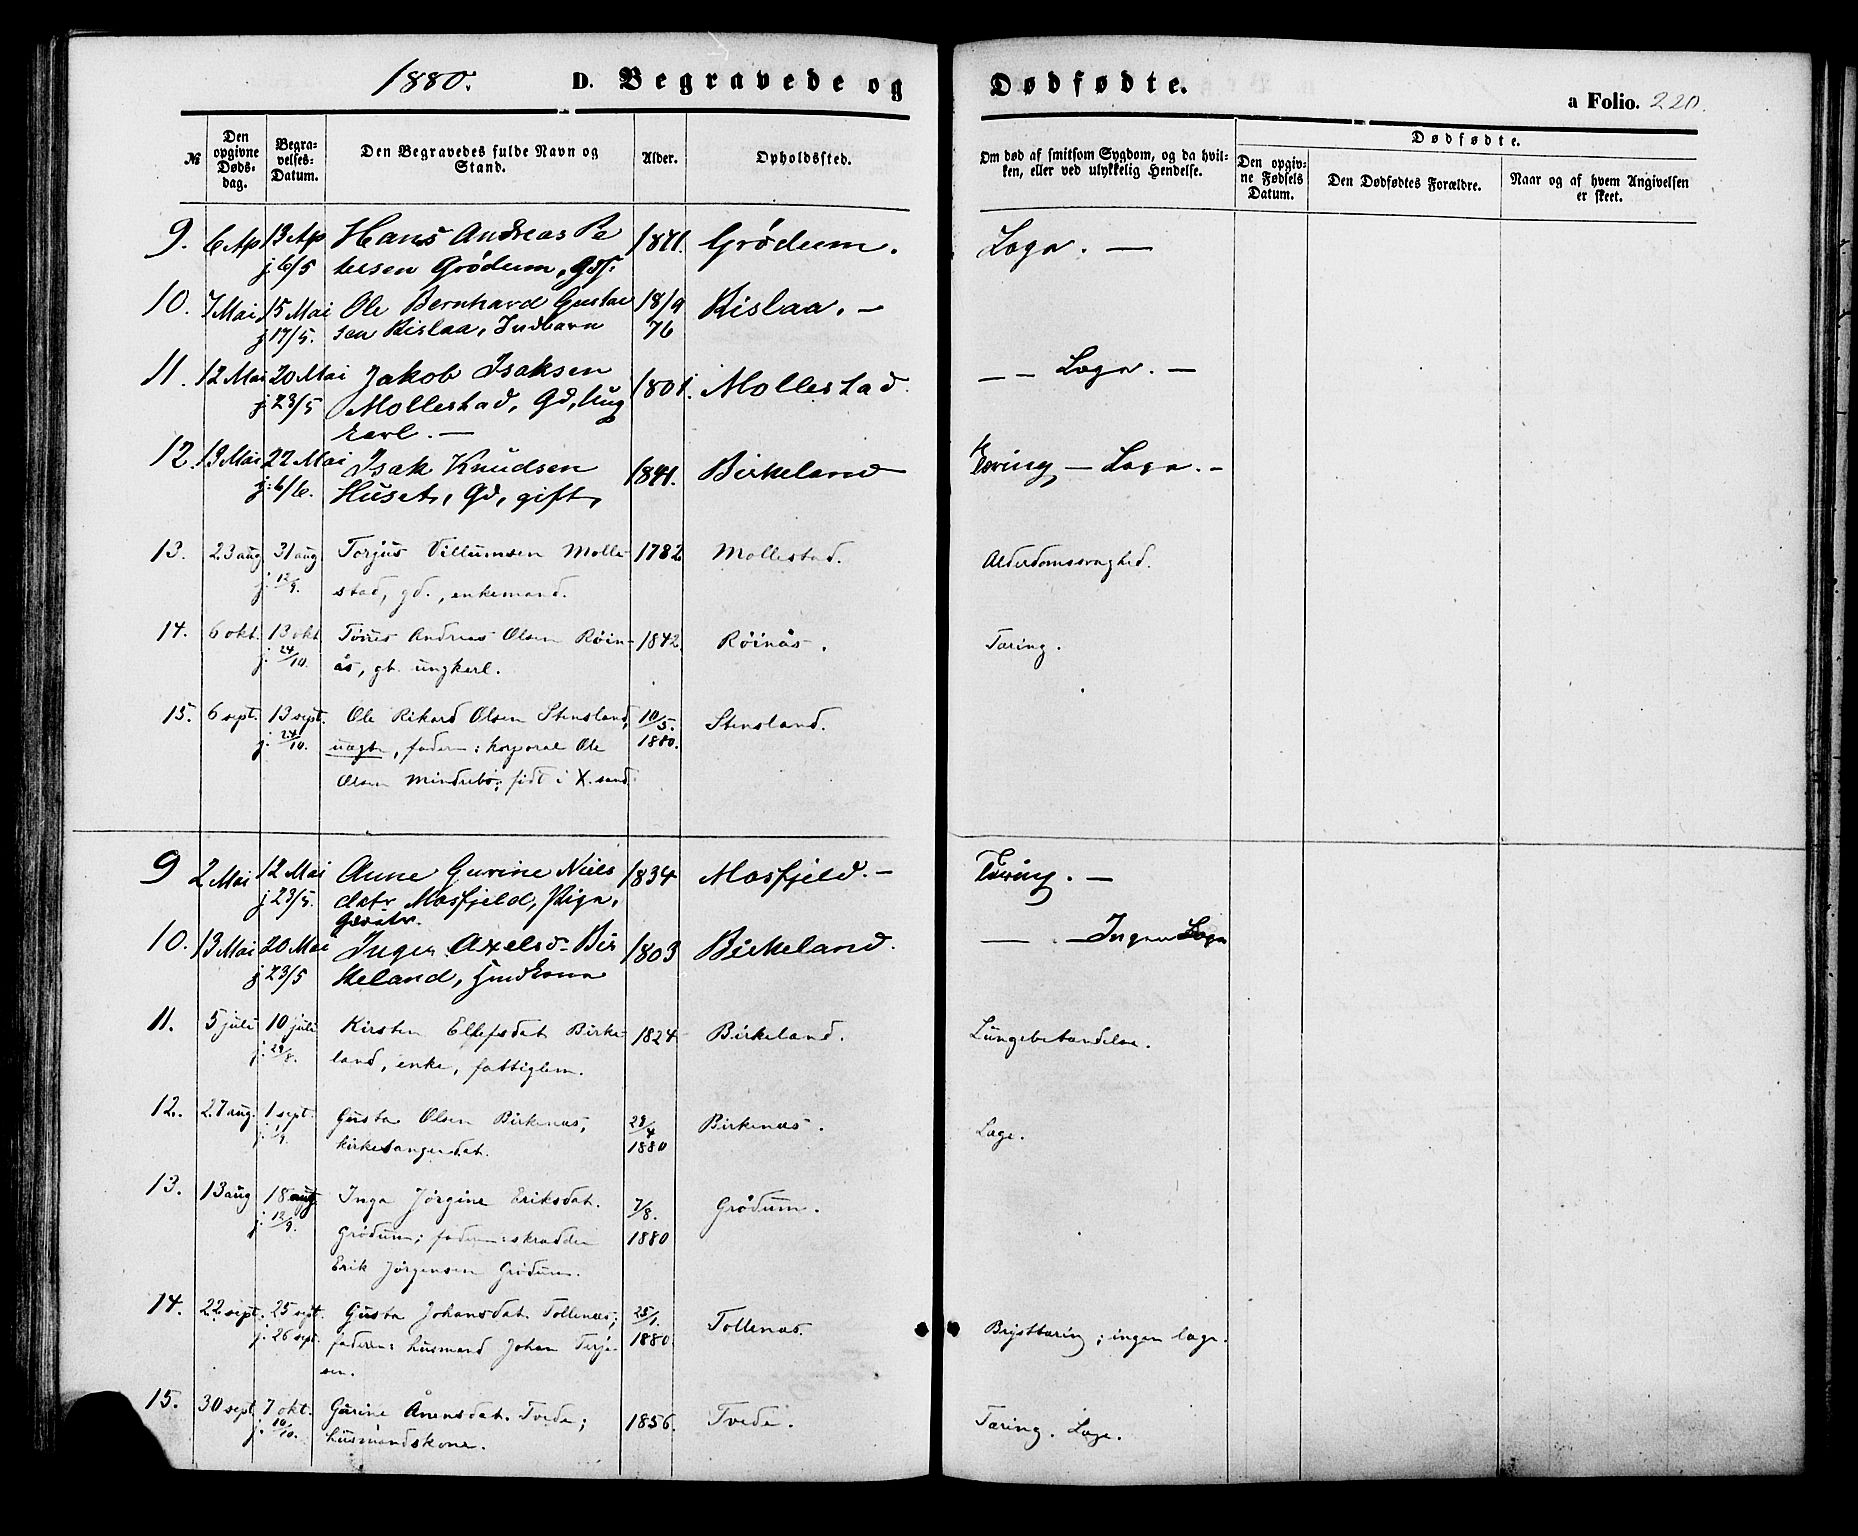 1880. D. Begravede og Dødfødte. a Folio. 220.
№ Den opgivne Dødsdag. Begravelses-Datum. Den Begravedes fulde Navn og Stand. Alder. Opholdssted. Om død af smitsom Sygdom, og da hvilken, eller ved ulykkelig Hendelse. Dødfødte. Den opgivne Fødsels Datum. Den Dødfødtes Forældre. Naar og af hvem Angivelsen er skeet.
9. 6 Ap 13 Ap Hans Andreas Pe 1841. Grødum. Læga. —
j 6/5 tersen Grødum, Gdf.
10. 7 Mai 15 Mai Ole Bernhard Gustav 18/9 Kislaa. —
j 17/5. sen Kislaa, Indbarn 76
11. 12 Mai 20 Mai Jakob Isaksen 1801. Mollestad. — — Læga. —
j 23/5 Mollestad, Gd, Ung
karl. —
12. 13 Mai 22 Mai Isak Knudsen 1841. Birkeland Tæring — Læga. —
j: 6/6. Huset, Gd, gift,
13. 23 aug 31 aug Torjus Villumsen Molle- 1782 Mollestad. Alderdomssvaghed.
j. 12/9. stad, gd., enkemand.
14. 6 okt. 13 okt Tørres Andreas Olsen Röin- 1842. Röinås. Tæring.
j. 24/10. ås, gb. ungkarl.
15. 6 sept. 13 sept. Ole Rikard Olsen Stensland, 10/5. Stensland.
j. 24/10. uægte, faderen: korporal Ole 1880.
Olsen Mindrebö; födt i X.sand.
9 2 Mai 12 Mai Anne Gurine Niels 1834 Mosfjeld. — Tæring. —
j 23/5. datr Mosfjeld, Pige,
Gdsdtr.
10. 13 Mai 20 Mai Inger Axelsd- Bir 1803 Birkeland. — — Ingen Læga
j 23/5 keland, Gmdkona
11. 5 juli 10 juli Kirsten Ellefsdat. Birke- 1824 Birkeland. Lungebetændelse.
j. 29/8. land, enke, fattiglem.
12. 27 aug. 1 sept. Gusta Olsen Birkenæs, 29/4 Birkenæs. Læge.
kirkesangerdat. 1880
13. 13 aug 18 aug Inga Jörgine Eriksdat. 7/8. Grödum.
j. 12/9. Grödum; faderen: skrædder 1880
Erik Jörgensen Grödum.
14. 22 sept. 25 sept. Gusta Johansdat. Tollenæs; 25/1. Tollenæs. Brysttæring; ingen læge.
j. 26 sept. faderen: husmand Johan Terje- 1880.
sen.
15. 30 sept 7 okt. Gurine Ånensdat. Tvede; 1856. Tvede. Tæring. Læge.
j. 10/10. husmandskone.